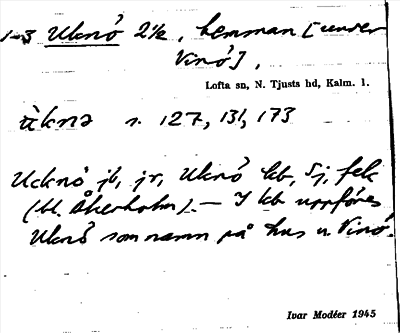 1-3 Uknö 2 1/2, hemman [under
Vinö],
Lofta sn, N. Tjusts hd, Kalm. l.
ùknə s. 127, 131, 173
Ucknö jb, jr, Uknö kb, Sj, fek
(bl. Åkerholm). — I kb uppföres
Uknö som namn på hus u. Vinö.
Ivar Modéer 1945